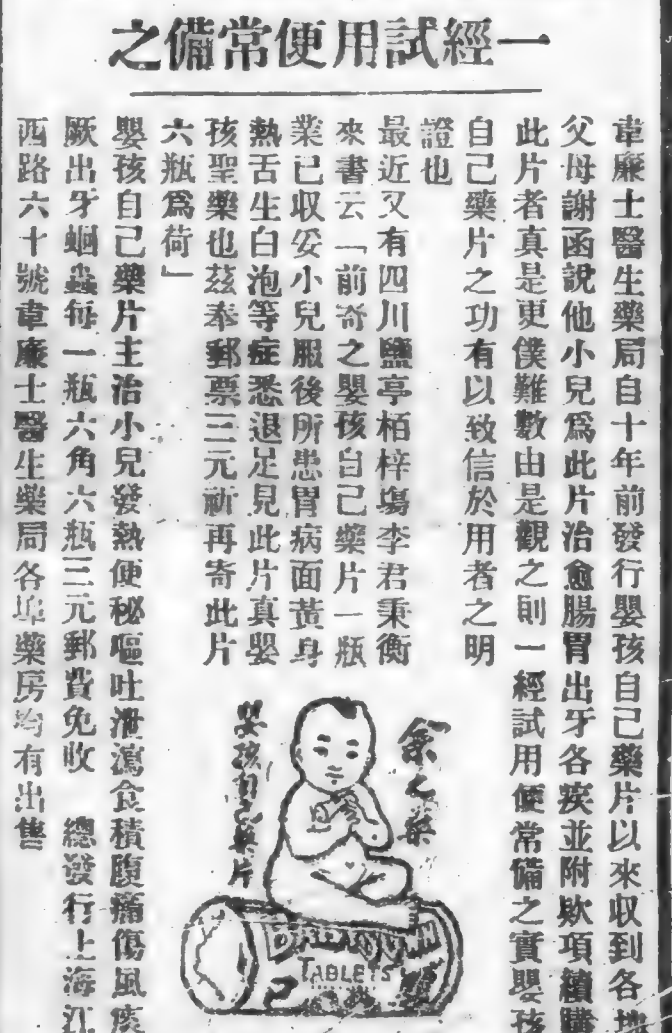 一經試用便常備之
韋廉士醫生藥局自十年前發行嬰孩自己藥片以來收到各地
父母謝函說他小兒爲此片治愈腸胃出牙各疾並附欵項續購
此片者眞是更僕難數由是觀之則一經試用便常備之實嬰孩
自己藥片之功有以致信於用者之明
證也
最近又有四川鹽亭栢梓塲李君秉衡
來書云「前寄之嬰孩自己藥片一瓶
業已收妥小兒服後所患胃病面黃身
熱舌生白泡等症悉退足見此片眞嬰
孩聖藥也茲奉郵票三元祈再寄此片
六瓶爲荷」
余之藥
嬰孩自己藥片
BABY'S OWN
TABLETS
嬰孩自己藥片主治小兒發熱便秘嘔吐泄瀉食積腹痛傷風痰
厥出牙蛔蟲每一瓶六角六瓶三元郵費免收 總發行上海江
西路六十號韋廉士醫生藥局各埠藥房均有出售